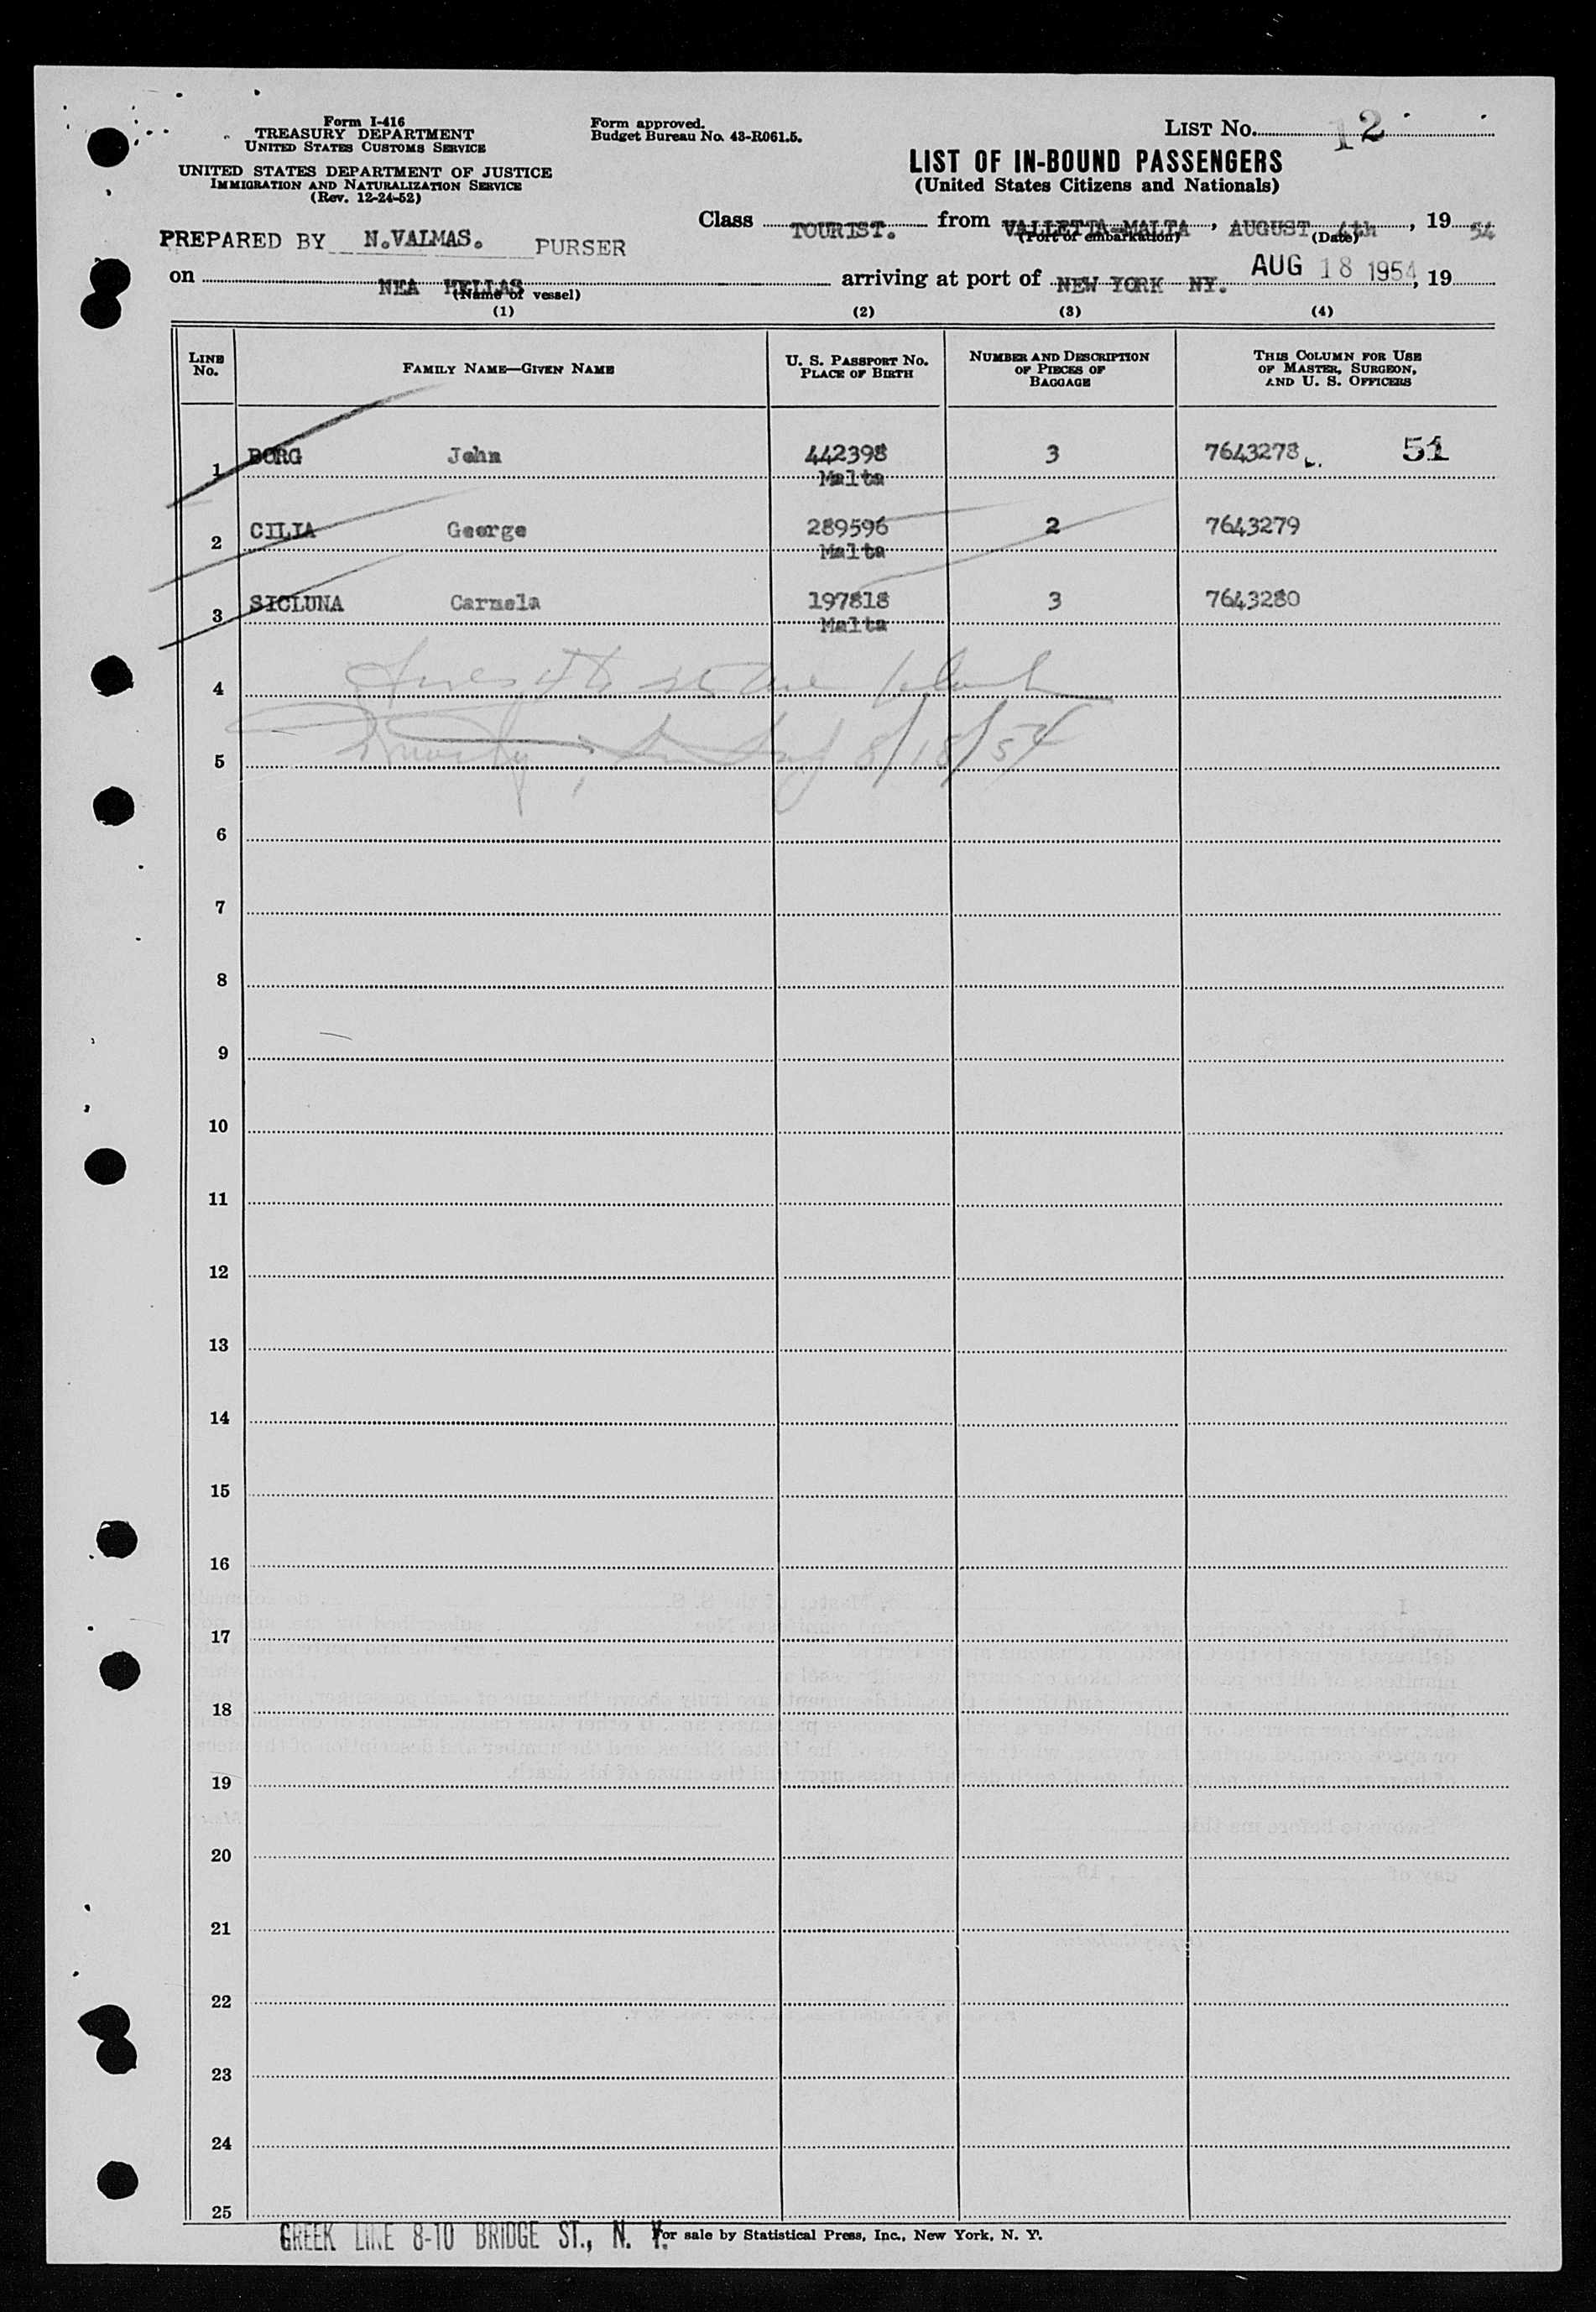 Form I-416
TREASURY DEPARTMENT
UNITED STATES CUSTOMS SERVICE
UNITED STATES DEPARTMENT OF JUSTICE
IMMIGRATION AND NATURALIZATION SERVICE
(Rev. 12-24-52)
Form approved.
Budget Bureau No. 43-R061.5.
LIST No. 12
LIST OF IN-BOUND PASSENGERS
(United States Citizens and Nationals)
Class TOURIST. from VALLETTA-MALTA, AUGUST 4th, 19 54
(Port of embarkation) (Date)
PREPARED BY N.VALMAS. PURSER
on NEA HELLAS arriving at port of NEW YORK NY. AUG 18 1954, 19
(Name of vessel)
(1) (2) (3) (4)
LINE No. FAMILY NAME—GIVEN NAME U. S. PASSPORT No. PLACE OF BIRTH NUMBER AND DESCRIPTION OF PIECES OF BAGGAGE THIS COLUMN FOR USE OF MASTER, SURGEON, AND U. S. OFFICERS
1 BORG John 442398 3 7643278 51
Malta
2 CILIA George 289596 2 7643279
Malta
3 SICLUNA Carmela 197818 3 7643280
Malta
4
5 8/18/54
6
7
8
9
10
11
12
13
14
15
16
17
18
19
20
21
22
23
24
25
GREEK LINE 8-10 BRIDGE ST., N. Y.
For sale by Statistical Press, Inc., New York, N. Y.